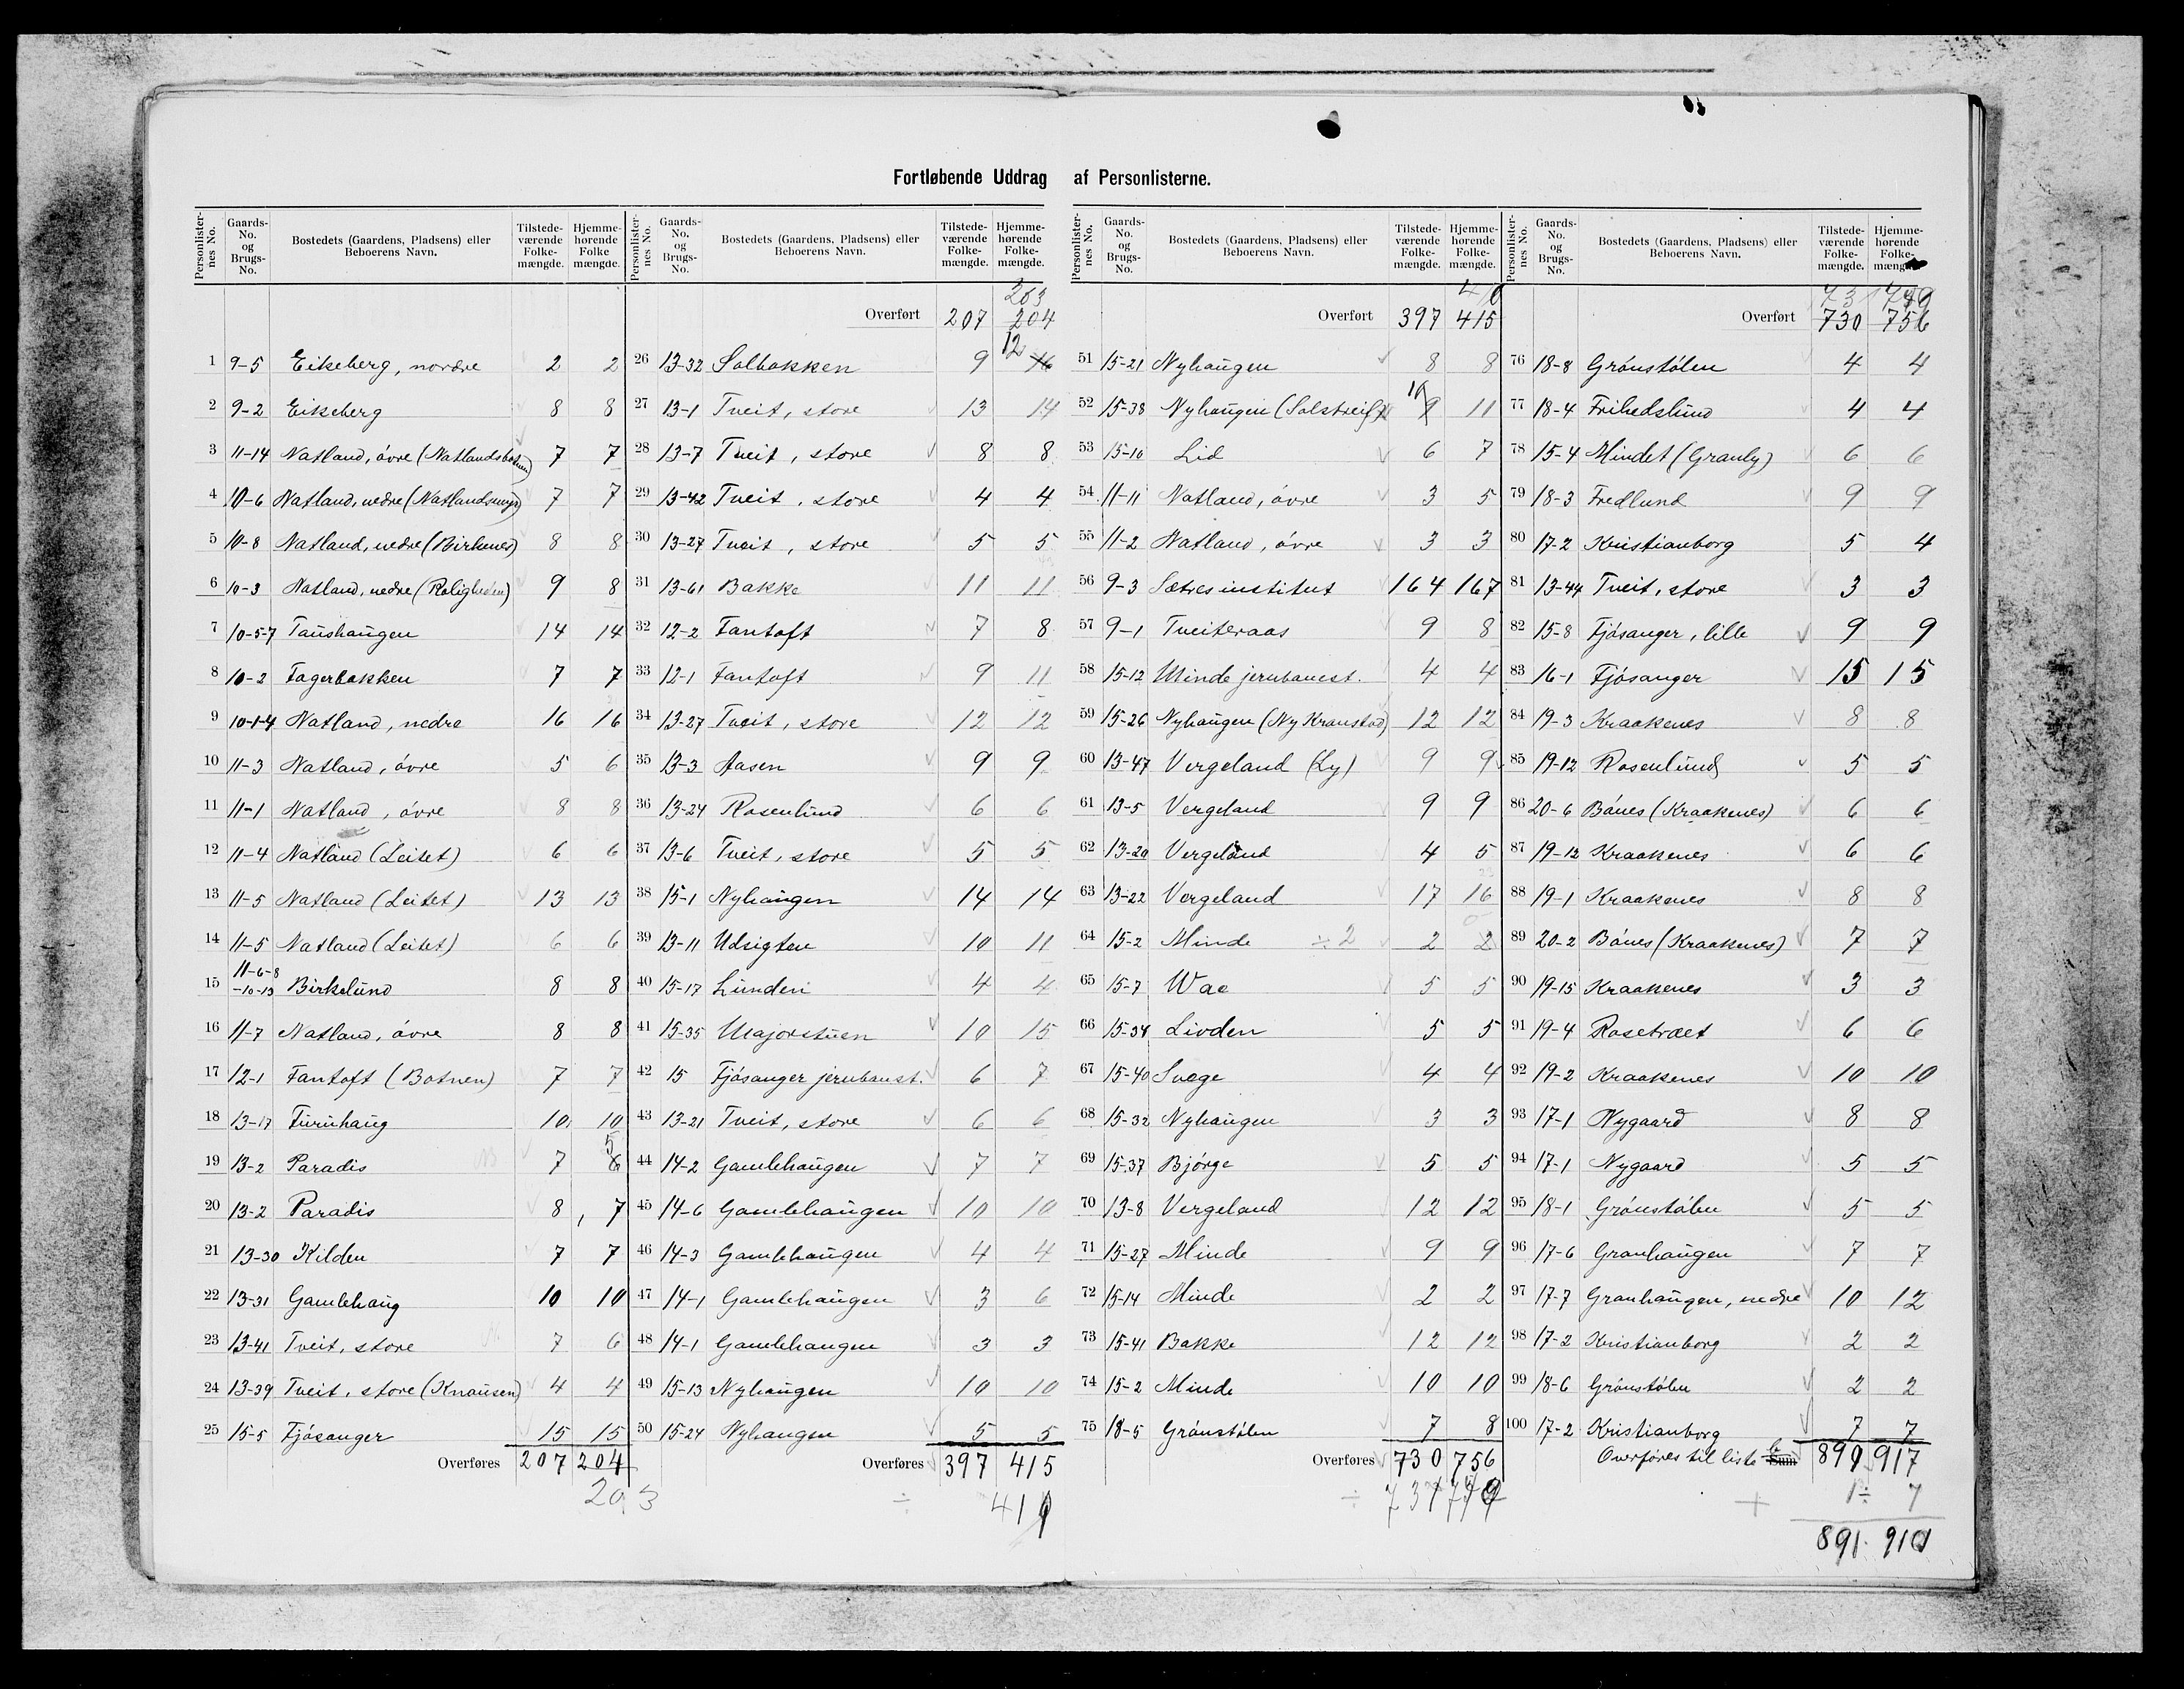 Fortløbende Uddrag af Personlisterne.
Personlister-nes No. Gaards-No. og Brugs-No. Bostedets (Gaardens, Pladsens) eller Beboerens Navn. Tilstede-værende Folke-mængde. Hjemme-hørende Folke mængde.
1 9-5 Eikeberg, nordre 2 2
2 9-2 Eikeberg 8 8
3 11-14 Natland, övre (Natlandsbotnen) 7 7
4 10-6 Natland, nedre (Natlandsmyr) 7 7
5 10-8 Natland, nedre (Birkenes) 8 8
6 10-3 Natland, nedre (Roligheden) 9 8
7 10-5-7 Taushaugen 14 14
8 10-2 Fagerbakken 7 7
9 10-1-4 Natland, nedre 16 16
10 11-3 Natland, övre 5 6
11 11-1 Natland, övre 8 8
12 11-4 Natland (Leitet) 6 6
13 11-5 Natland (Leitet) 13 13
14 11-5 Natland (Leitet) 6 6
15 11-6-8 -10-13 Birkelund 8 8
16 11-7 Natland, övre 8 8
17 12-1 Fantoft (Botnen) 7 7
18 13-17 Furuhaug 10 10
19 13-2 Paradis 7 6 5
20 13-2 Paradis 8 7
21 13-30 Kilden 7 7
22 13-31 Gamlehaug 10 10
23 13-41 Tveit, store 7 6
24 13-39 Tveit, store (Knausen) 4 4
25 15-5 Fjösanger 15 15
Overføres 207 204
203
Personlister-nes No. Gaards-No. og Brugs-No. Bostedets (Gaardens, Pladsens) eller Beboerens Navn. Tilstede-værende Folke-mængde. Hjemme-hørende Folke-mængde.
203
Overført 207 204
26 13-32 Solbakken 9 16 12
27 13-1 Tveit, store 13 14
28 13-7 Tveit, store 8 8
29 13-42 Tveit, store 4 4
30 13-27 Tveit, store 5 5
31 13-61 Bakke 11 11
32 12-2 Fantoft 7 8
33 12-1 Fantoft 9 11
34 13-27 Tveit, store 12 12
35 13-3 Aasen 9 9
36 13-24 Rosenlund 6 6
37 13-6 Tveit, store 5 5
38 15-1 Nyhaugen 14 14
39 13-11 Udsigten 10 11
40 15-17 Lunden 4 4
41 15-35 Majorstuen 10 15
42 15 Fjösanger jernbanest. 6 7
43 13-21 Tveit, store 6 6
44 14-2 Gamlehaugen 7 7
45 14-6 Gamlehaugen 10 10
46 14-3 Gamlehaugen 4 4
47 14-1 Gamlehaugen 3 6
48 14-1 Gamlehaugen 3 3
49 15-13 Nyhaugen 10 10
50 15-24 Nyhaugen 5 5
Overføres 397 415
÷
Personlister-nes No. Gaards-No. og Brugs-No. Bostedets (Gaardens, Pladsens) eller Beboerens Navn. Tilstede-værende Folke-mængde. Hjemme-hørende Folke-mængde.
Overført 397 415
51 15-21 Nyhaugen 8 8
52 15-38 Nyhaugen (Solstreif) 9 10 11
53 15-10 Lid 6 7
54 11-11 Natland, övre 3 5
55 11-2 Natland, övre 3 3
56 9-3 Sætres institut 164 167
57 9-1 Tveiteraas 9 8
58 15-12 Minde jernbanest. 4 4
59 15-26 Nyhaugen (Ny Kronstad) 12 12
60 13-47 Vergeland (Ly) 9 9
61 13-5 Vergeland 9 9
62 13-20 Vergeland 4 5
63 13-22 Vergeland 17 16
64 15-2 Minde ÷2 2 2
65 15-7 Wae 5 5
66 15-34 Livden 5 5
67 15-40 Svege 4 4
68 15-32 Nyhaugen 3 3
69 15-37 Bjørge 5 5
70 13-8 Vergeland 12 12
71 15-27 Minde 9 9
72 15-14 Minde 2 2
73 15-41 Bakke 12 12
74 15-2 Minde 10 10
75 18-5 Grönstölen 7 8
Overføres 730 756
÷ 731
Personlister-nes No. Gaards-No. og Brugs-No. Bostedets (Gaardens, Pladsens) eller Beboerens Navn. Tilstede-værende Folke-mængde. Hjemme-hørende Folke-mængde.
731
Overført 730 756
76 18-8 Grönstölen 4 4
77 18-4 Frihedslund 4 4
78 15-4 Mindet (Granly) 6 6
79 18-3 Fredlund 9 9
80 17-2 Kristianborg 5 4
81 13-44 Tveit, store 3 3
82 15-8 Fjösanger, lille 9 9
83 16-1 Fjösanger 15 15
84 19-3 Kraakenes 8 8
85 19-12 Rosenlund 5 5
86 20-6 Bönes (Kraakenes) 6 6
87 19-12 Kraakenes 6 6
88 19-1 Kraakenes 8 8
89 20-2 Bönes (Kraakenes) 7 7
90 19-15 Kraakenes 3 3
91 19-4 Rosetræet 6 6
92 19-2 Kraakenes 10 10
93 17-1 Nygaard 8 8
94 17-1 Nygaard 5 5
95 18-1 Grönstölen 5 5
96 17-6 Granhaugen 7 7
97 17-7 Granhaugen, nedre 10 12
98 17-2 Kristianborg 2 2
99 18-6 Grönstölen 2 2
100 17-2 Kristianborg 7 7
Overføres til liste 6 Sum 890 917
+ 1 ÷ 7
891 910